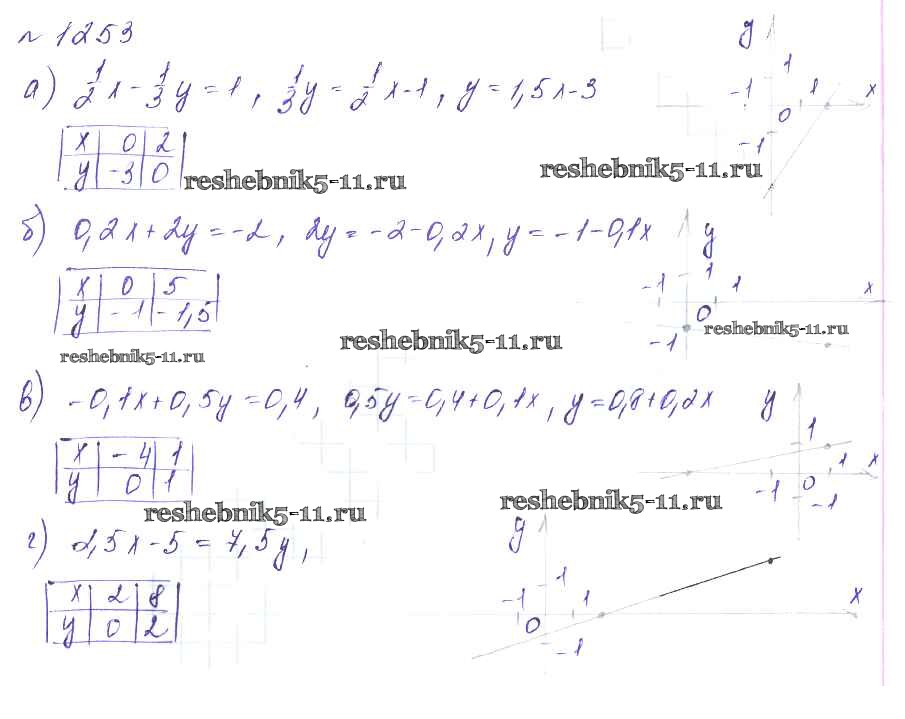 № 1253
а) 1/2 x - 1/3 y = 1, 1/3 y = 1/2 x - 1, y = 1,5x - 3
x 0 2
y -3 0
reshebnik5-11.ru
reshebnik5-11.ru
y
1
-1 0 1 x
-1
б) 0,2x + 2y = -2, 2y = -2 - 0,2x, y = -1 - 0,1x
x 0 5
y -1 -1,5
y
1
-1 0 1 x
-1
reshebnik5-11.ru
reshebnik5-11.ru
reshebnik5-11.ru
в) -0,1x + 0,5y = 0,4, 0,5y = 0,4 + 0,1x, y = 0,8 + 0,2x
x -4 1
y 0 1
y
1
-1 0 1 x
-1
reshebnik5-11.ru
reshebnik5-11.ru
г) 2,5x - 5 = 7,5y,
x 2 8
y 0 2
y
1
-1 0 1 x
-1